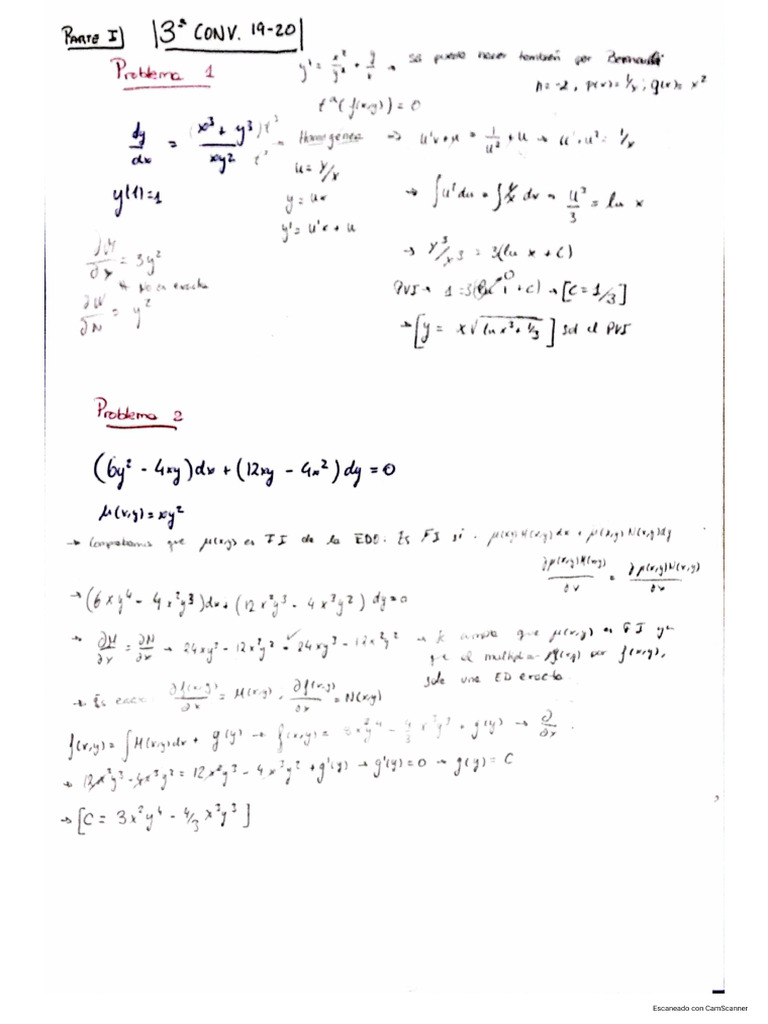 PARTE I] |3ª CONV. 19-20|
Problema 1
y' = x²/y² + y/x → se puede hacer también por Bernoulli
n=-2, p(x)=1/x ; q(x)= x²
tⁿ(f(x,y)) = 0
dy/dx = (x³ + y³)t³/xy² t³ → Homogenea ⇒ u'x+u = 1/u² + u → u'·u² = 1/x
y(1)=1
u = y/x
y = ux
y' = u'x + u
→ ∫u²du = ∫1/x dx → u³/3 = ln x
→ y³/x³ = 3(ln x + C)
∂M/∂y = 3y²
* No es exacta
∂N/∂x = y²
PVI → 1 = 3(ln 1 + C) → [C = 1/3]
→ [y = x√ln x³ + 1/3] sol el PVI
Problema 2
(6y² - 4xy)dx + (12xy - 4x²)dy = 0
μ(x,y) = xy²
→ Comprobamos que μ(x,y) es FI de la EDO: Es FI si · μ(x,y)M(x,y)dx + μ(x,y)N(x,y)dy
∂μ(x,y)M(x,y)/∂x = ∂μ(x,y)N(x,y)/∂x
→ (6xy⁴ - 4x²y³)dx + (12x²y³ - 4x³y²) dy = 0
→ ∂M/∂x = ∂N/∂x → 24xy³ - 12x²y² = 24xy³ - 12x²y² → que μ(x,y) es FI ya
que al multiplicar por f(x,y),
sale una ED exacta
→ Es exac: ∂f(x,y)/∂x = M(x,y) , ∂f(x,y)/∂x = N(x,y)
f(x,y) = ∫M(x,y)dx + g(y) → f(x,y) = 3x²y⁴ - 4/3 x³y³ + g(y) → ∂/∂x
→ 12x²y³ - 4x³y² = 12x²y³ - 4x³y² + g'(y) → g'(y) = 0 → g(y) = C
→ [C = 3x²y⁴ - 4/3 x³y³]
Escaneado con CamScanner